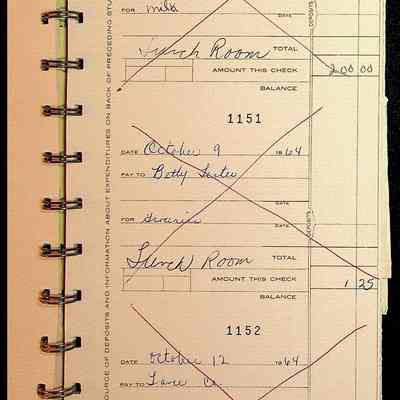 FOR milk
DATE
DEPOSITS
Lunch Room TOTAL
AMOUNT THIS CHECK 200 00
BALANCE
1151
DATE October 9 1964
PAY TO Betty
DATE
FOR
DEPOSITS
Lunch Room TOTAL
AMOUNT THIS CHECK 1 25
BALANCE
1152
DATE October 12 1964
PAY TO Lance Co.
DATE
SOURCE OF DEPOSITS AND INFORMATION ABOUT EXPENDITURES ON BACK OF PRECEDING STU